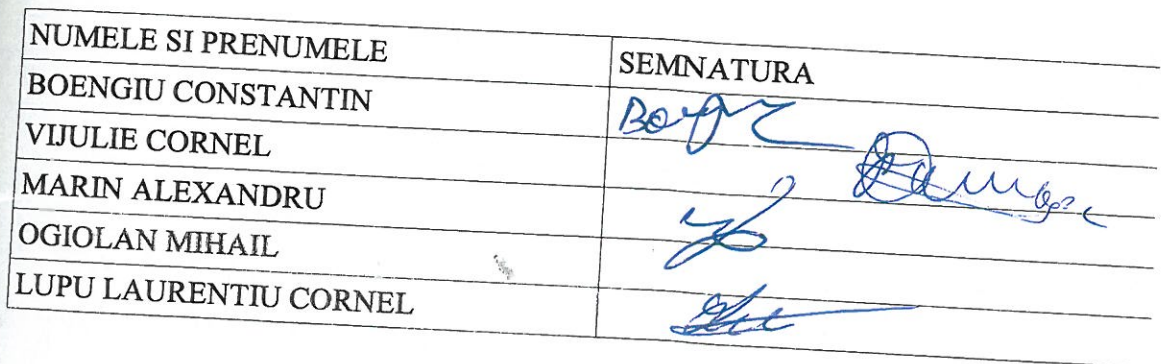 NUMELE SI PRENUMELE SEMNATURA
BOENGIU CONSTANTIN
VIJULIE CORNEL
MARIN ALEXANDRU
OGIOLAN MIHAIL
LUPU LAURENTIU CORNEL